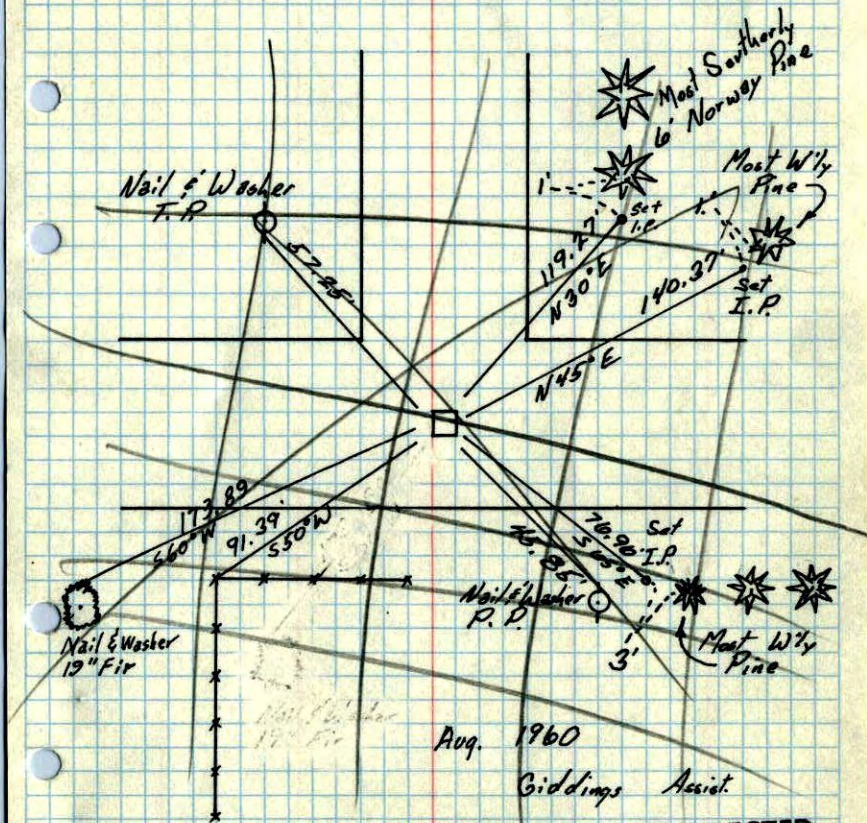 Most Southerly
6' Norway Pine
Most W'ly
Pine
Nail & Washer
T.P.
1'
Set
I.P.
1'
57.25'
119.27'
N30°E
140.37'
Set
I.P.
N45°E
173.89
S60°W
91.39'
S50°W
76.96'
S45°E
Set
I.P.
Nail & Washer
P.P.
3'
Most W'ly
Pine
Nail & Washer
19" Fir
Nail & Washer
19" Fir
Aug. 1960
Giddings Assist.